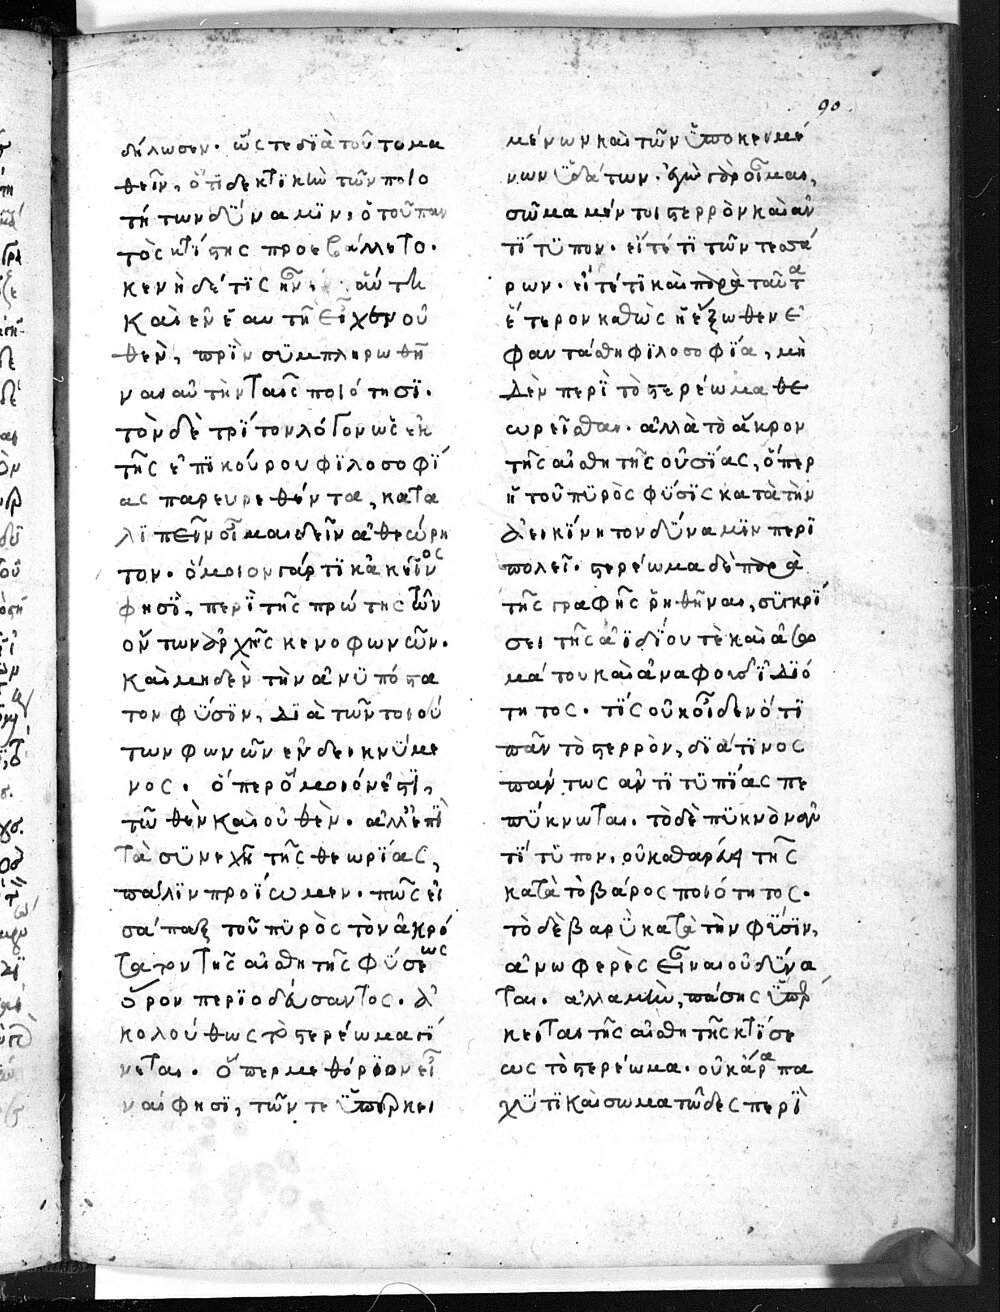 90
δήλωσεν. ὥς τε διὰ τούτο μα
θεῖν, ὅτι δεκτικὴ τῶν ποιο
τήτων δύναμιν, ὁ τοῦ παν
τὸς κτίστης προεβάλλετο.
κενὴ δέ τις ἦν αὐτὴ
καὶ ἐν ἑαυτῇ εἶχεν οὐ
θὲν, πρὶν συμπληρωθῆ
ναι αὐτὴν ταῖς ποιότησι.
τὸν δὲ τρίτον λόγον ὡς ἐκ
τῆς ἐπικούρου φιλοσοφί
ας παρευρεθέντα, κατα
λιπεῖν οἶμαι δεῖν ἀθεώρη
τον. ὅμοιον γάρ τι κἀκεῖνος
φησὶ, περὶ τῆς πρώτης τῶν
ὄντων ἀρχῆς κενοφωνῶν.
καὶ μηδὲν τὴν ἀνυπόστα
τον φύσιν, διὰ τῶν τοιού
των φωνῶν ἐνδεικνύμε
νος. ὅπερ ὅμοιόν ἐστι,
τῶ θὲν καὶ οὐθὲν. ἀλλ' ἐπὶ
τὰ συνεχῆ τῆς θεωρίας,
πάλιν προΐωμεν. πῶς εἰ
σάπαξ τοῦ πυρὸς τὸν ἀκρό
τατον τῆς αἰσθητῆς φύσεως
ὅρον περιοδεύσαντος. ἀ
κολούθως τὸ στερέωμα γί
νεται. ὅπερ μεθόριον εἶ
ναί φησι, τῶν τε ὑπερκει
μένων καὶ τῶν ὑποκειμέ
νων ὑδάτων. ἐγὼ γὰρ οἶμαι,
σῶμα μέν τοι στερρὸν καὶ ἀν
τίτυπον. εἴτέ τι τῶν τεσσά
ρων. εἴτέ τι καὶ παρὰ ταῦτα
ἕτερον καθὼς ἡ ἔξωθεν ἐ
φαντάσθη φιλοσοφία, μη
δὲν περὶ τὸ στερέωμα θε
ωρεῖσθαι. ἀλλὰ τὸ ἄκρον
τῆς αἰσθητῆς οὐσίας, ὅπερ
ἡ τοῦ πυρὸς φύσις κατὰ τὴν
ἀεικίνητον δύναμιν περι
πολεῖ. στερέωμα δὲ παρὰ
τῆς γραφῆς ῥηθῆναι, συγκρί
σει τῆς ἀϊδίου τὲ καὶ ἀσω
μάτου καὶ ἀναφοῦς ἰδιό
τητος. τίς οὐκ οἶδεν ὅτι
πᾶν τὸ στερρὸν, διά τινος
πάντως ἀντιτυπίας πε
πύκνωται. τὸ δὲ πυκνὸν καὶ ἀν
τίτυπον, οὐ καθαρεύει τῆς
κατὰ τὸ βάρος ποιότητος.
τὸ δὲ βαρὺ κατὰ τὴν φύσιν,
ἀνωφερὲς εἶναι οὐ δύνα
ται. ἀλλὰ μὴν, πάσης ὑπέρ
κειται τῆς αἰσθητῆς κτίσε
ως τὸ στερέωμα. οὐκ ἄρα πα
χύ τι καὶ σωματῶδες περὶ